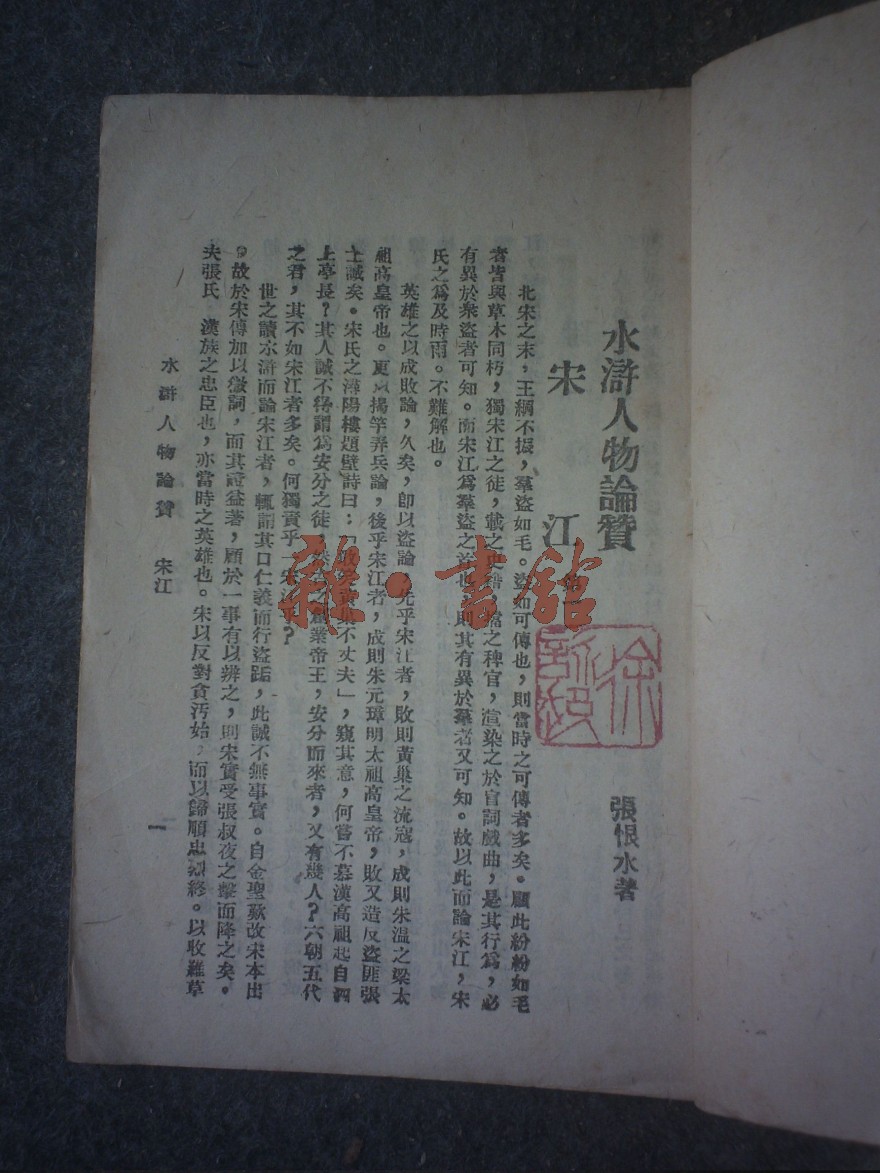 水滸人物論贊
張恨水著
宋江
北宋之末，王綱不振，羣盜如毛。盜如可傳也，則當時之可傳者多矣。顧此紛紛如毛
者皆與草木同朽，獨宋江之徒，載之史籍，之稗官，渲染之於盲詞戲曲，是其行爲，必
有異於衆盜者可知。而宋江爲羣盜之首也，則其有異於羣者又可知。故以此而論宋江，宋
氏之爲及時雨。不難解也。
英雄之以成敗論，久矣，卽以盜論。先乎宋江者，敗則黃巢之流寇，成則朱温之梁太
祖高皇帝也。更以揭竿弄兵論，後乎宋江者，成則朱元璋明太祖高皇帝，敗又造反盜匪張
士誠矣。宋氏之潯陽樓題壁詩曰：「敢笑黃巢不丈夫」，窺其意，何嘗不慕漢高祖起自泗
上亭長？其人誠不得謂爲安分之徒，然古之創業帝王，安分而來者，又有幾人？六朝五代
之君，其不如宋江者多矣。何獨責乎一宋江乎？
世之讀水滸而論宋江者，輒謂其口仁義而行盜跖，此誠不無事實。自金聖歎改宋本出
，故於宋傳加以微詞，而其證益著，顧於一事有以辨之，則宋實受張叔夜之擊而降之矣。
夫張氏 漢族之忠臣也，亦當時之英雄也。宋以反對貪汚始，而以歸順忠烈終。以收羅草
水滸人物論贊 宋江
一
雜·書館
徐